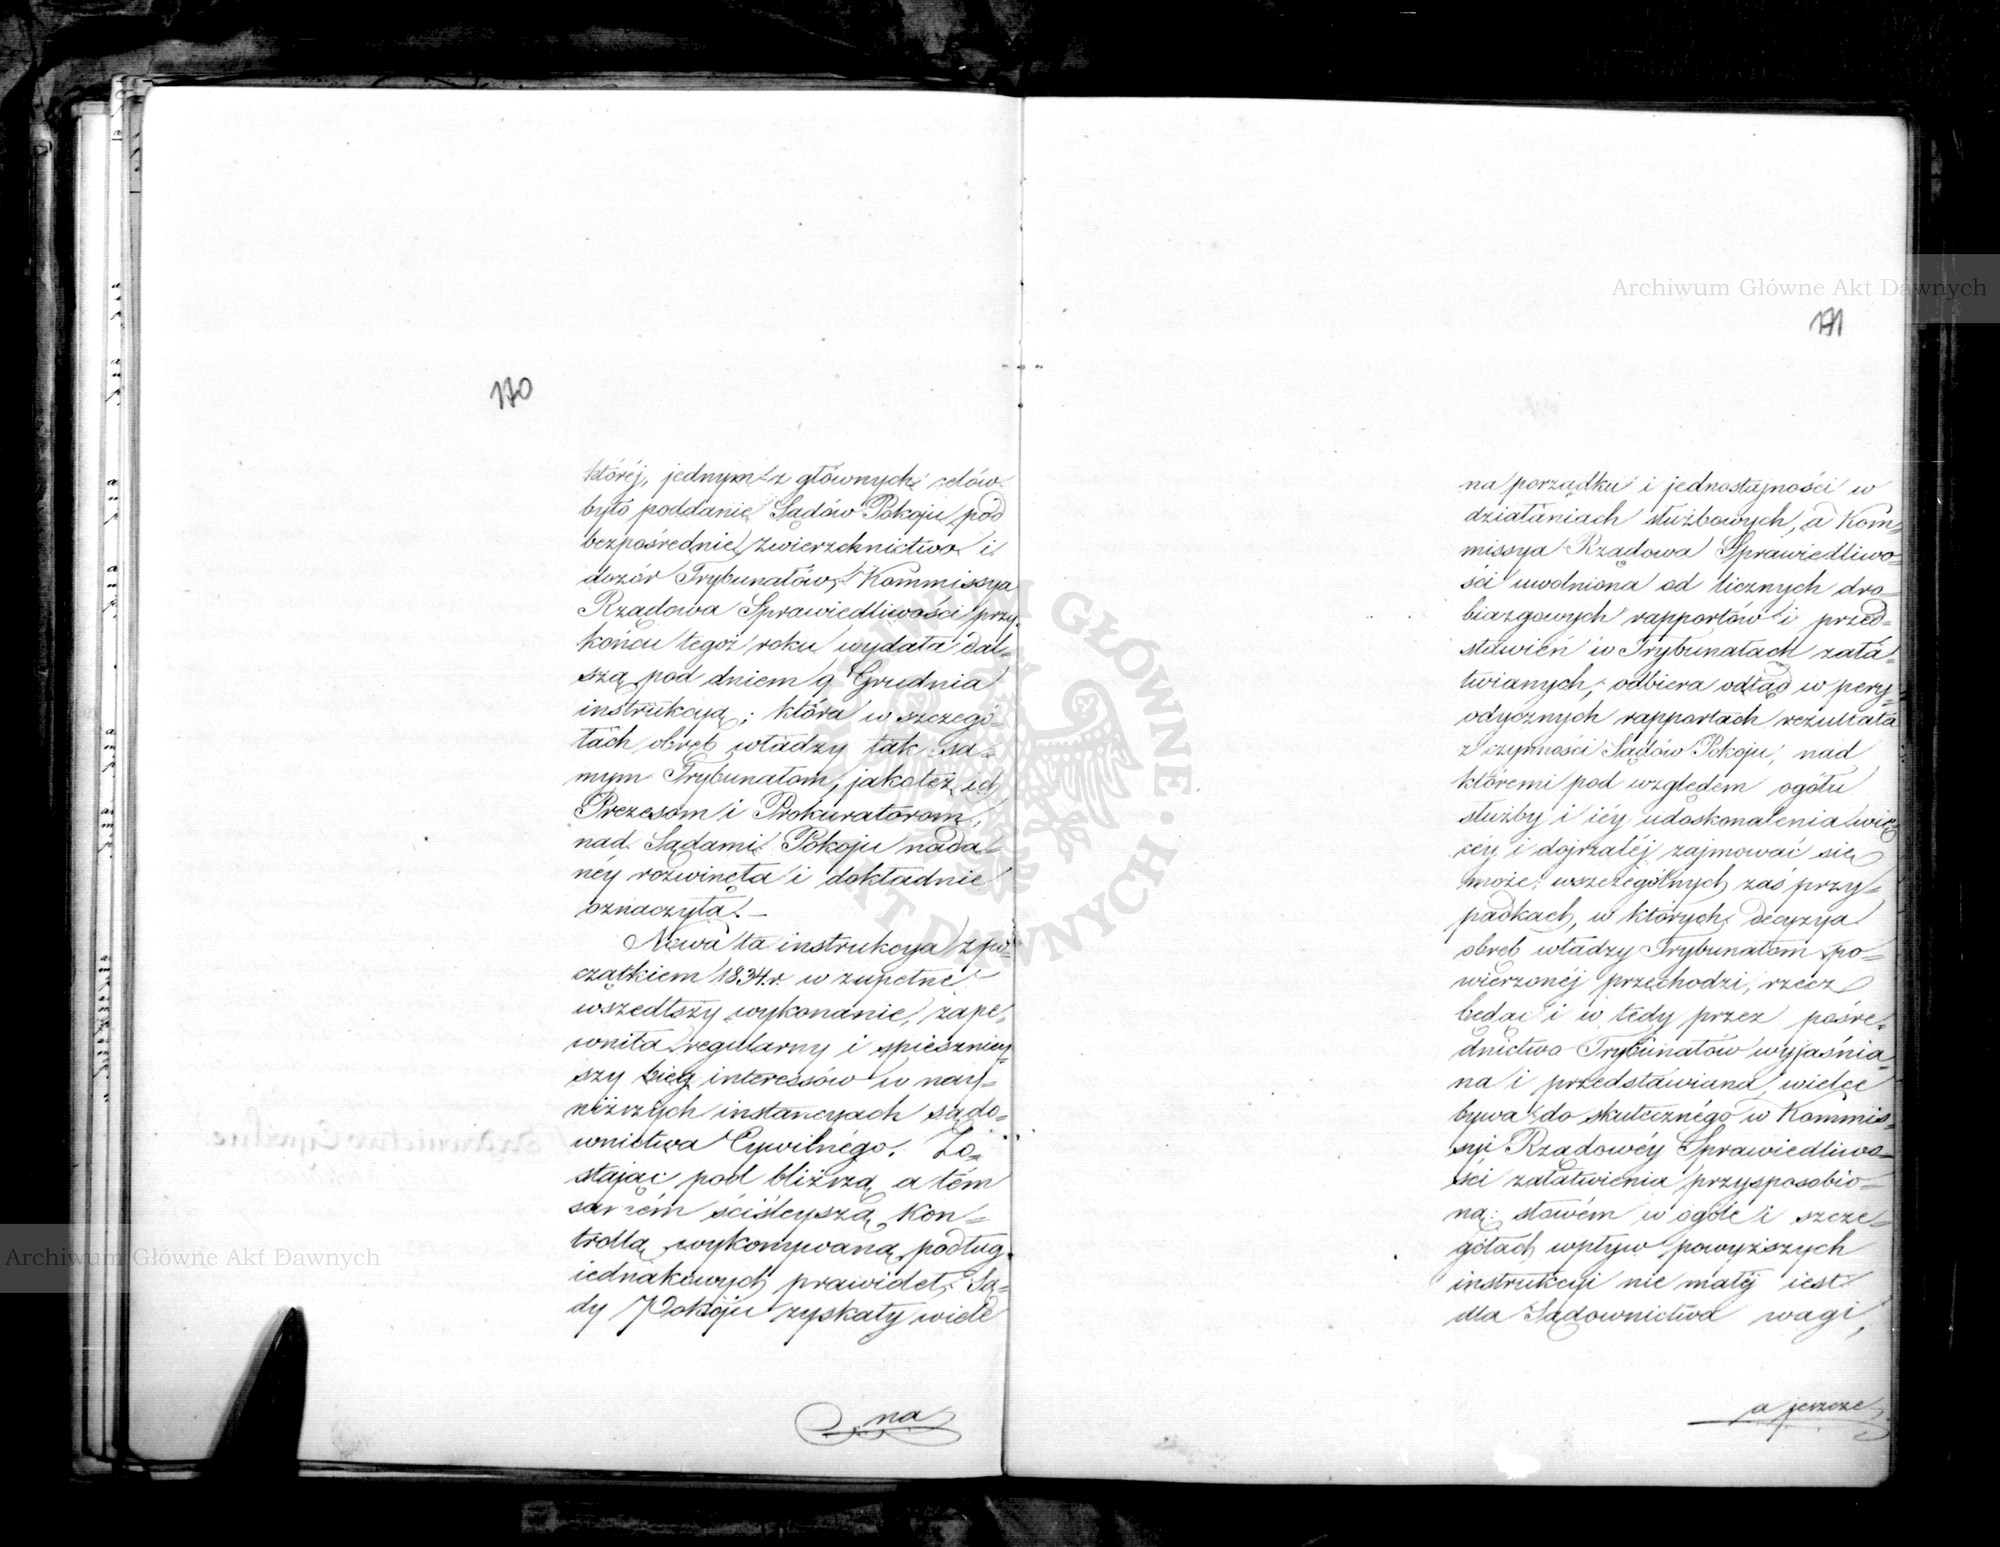 170
któréj, jednym z głównych celów
było poddanie Sądów Pokoju pod
bezpośrednie zwierzchnictwo i
dozór Trybunałów, Kommissya
Rządowa Sprawiedliwości przy
końcu tegoż roku wydała dal=
szą pod dniem 9 Grudnia
instrukcyą; która w szczegó=
łach obręb władzy tak sa=
mym Trybunałom, jakoteż ich
Prezesom i Prokuratorom,
nad Sądami Pokoju nada=
néy rozwinęła i dokładnie
oznaczyła. —
Nowa ta instrukcya z po=
czątkiem 1834.r. w zupełne
wszedłszy wykonanie, zape=
wniła regularny i spieszniey=
szy bieg interessów w nay=
niższych instancyach sądo=
wnictwa Cywilnégo. Zo=
stając pod bliższą a tém
samém ściśleyszą kon=
trollą wykonywaną podług
iednakowych prawideł, Są=
dy Pokoju zyskały wiele
na
171
na porządku i jednostajności w
działaniach służbowych, a Kom=
missya Rządowa Sprawiedliwo=
ści uwolniona od licznych dro=
biazgowych rapportów i przed=
stawień w Trybunałach zała=
twianych, odbiera odtąd w pery=
odycznych rapportach rezultata
z czynności Sądów Pokoju, nad
któremi pod względem ogółu
służby i iéy udoskonalenia wię
céy i dojrzaléj zajmować się
może; w szczególnych zaś przy=
padkach, w których decyzya
obręb władzy Trybunałom po=
wierzonéj przechodzi, rzecz
będąc i w tedy przez pośre=
dnictwo Trybunałów wyjaśnia=
na i przedstawiana, wielce
bywa do skutecznégo w Kommis=
syi Rządowéy Sprawiedliwo=
ści załatwienia przysposobio=
ną: słowém w ogóle i szcze=
gółach wpływ powyższych
instrukcyi nie małéj iest
dla Sądownictwa wagi,
a jeszcze
Archiwum Główne Akt Dawnych
Archiwum Główne Akt Dawnych